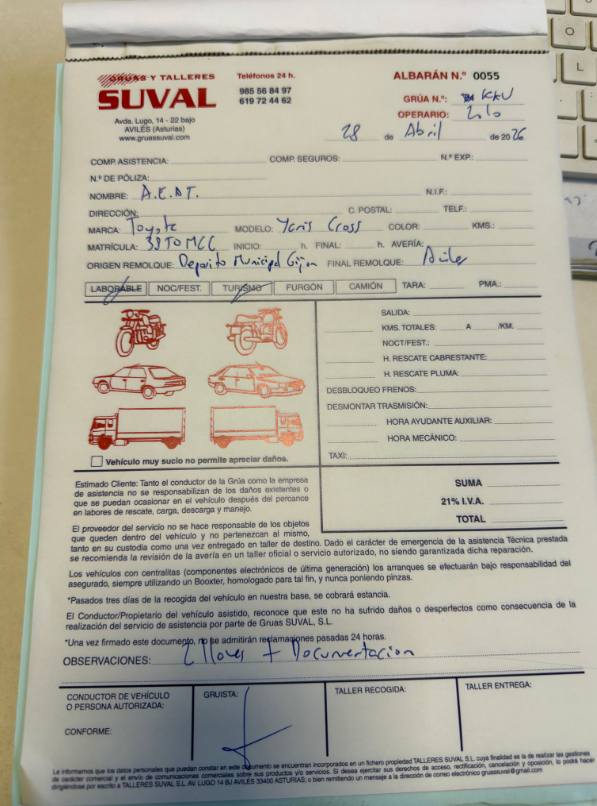 GRUAS Y TALLERES
SUVAL
Avda. Lugo, 14 - 22 bajo
AVILÉS (Asturias)
www.gruassuval.com
Teléfonos 24 h.
985 56 84 97
619 72 44 62
ALBARÁN N.º 0055
GRÚA N.º: KKU
OPERARIO:
28 de Abril de 2026
COMP. ASISTENCIA: COMP. SEGUROS: N.º EXP.:
N.º DE PÓLIZA:
NOMBRE: A.E.A.T. N.I.F.:
DIRECCIÓN: C. POSTAL: TELF.:
MARCA: Toyota MODELO: Yaris Cross COLOR: KMS.:
MATRÍCULA: INICIO: h. FINAL: h. AVERÍA:
ORIGEN REMOLQUE: Deposito Municipal Gijon FINAL REMOLQUE: Aviles
LABORABLE NOC/FEST. TURISMO FURGÓN CAMIÓN TARA: PMA.:
SALIDA:
KMS. TOTALES: A /KM.
NOCT/FEST.:
H. RESCATE CABRESTANTE:
H. RESCATE PLUMA:
DESBLOQUEO FRENOS:
DESMONTAR TRASMISIÓN:
HORA AYUDANTE AUXILIAR:
HORA MECÁNICO:
TAXI:
Vehículo muy sucio no permite apreciar daños.
SUMA
21% I.V.A.
TOTAL
Estimado Cliente: Tanto el conductor de la Grúa como la empresa
de asistencia no se responsabilizan de los daños existentes o
que se puedan ocasionar en el vehículo después del percance
en labores de rescate, carga, descarga y manejo.
El proveedor del servicio no se hace responsable de los objetos
que queden dentro del vehículo y no pertenezcan al mismo,
tanto en su custodia como una vez entregado en taller de destino. Dado el carácter de emergencia de la asistencia Técnica prestada
se recomienda la revisión de la avería en un taller oficial o servicio autorizado, no siendo garantizada dicha reparación.
Los vehículos con centralitas (componentes electrónicos de última generación) los arranques se efectuarán bajo responsabilidad del
asegurado, siempre utilizando un Booxter, homologado para tal fin, y nunca poniendo pinzas.
*Pasados tres días de la recogida del vehículo en nuestra base, se cobrará estancia.
El Conductor/Propietario del vehículo asistido, reconoce que este no ha sufrido daños o desperfectos como consecuencia de la
realización del servicio de asistencia por parte de Gruas SUVAL, S.L.
*Una vez firmado este documento, no se admitirán reclamaciones pasadas 24 horas.
OBSERVACIONES: 2 llaves + Documentacion
CONDUCTOR DE VEHÍCULO
O PERSONA AUTORIZADA:
GRUISTA:
TALLER RECOGIDA:
TALLER ENTREGA:
CONFORME:
Le informamos que los datos personales que puedan constar en este documento se encuentran incorporados en un fichero propiedad TALLERES SUVAL S.L. cuya finalidad es la de realizar las gestiones
de carácter comercial y el envío de comunicaciones comerciales sobre sus productos y/o servicios. Si desea ejercitar sus derechos de acceso, rectificación, cancelación y oposición, lo podrá hacer
dirigiéndose por escrito a TALLERES SUVAL S.L. AV. LUGO 14 BJ AVILES 33400 ASTURIAS; o bien remitiendo un mensaje a la dirección de correo electrónico gruassuval@gmail.com